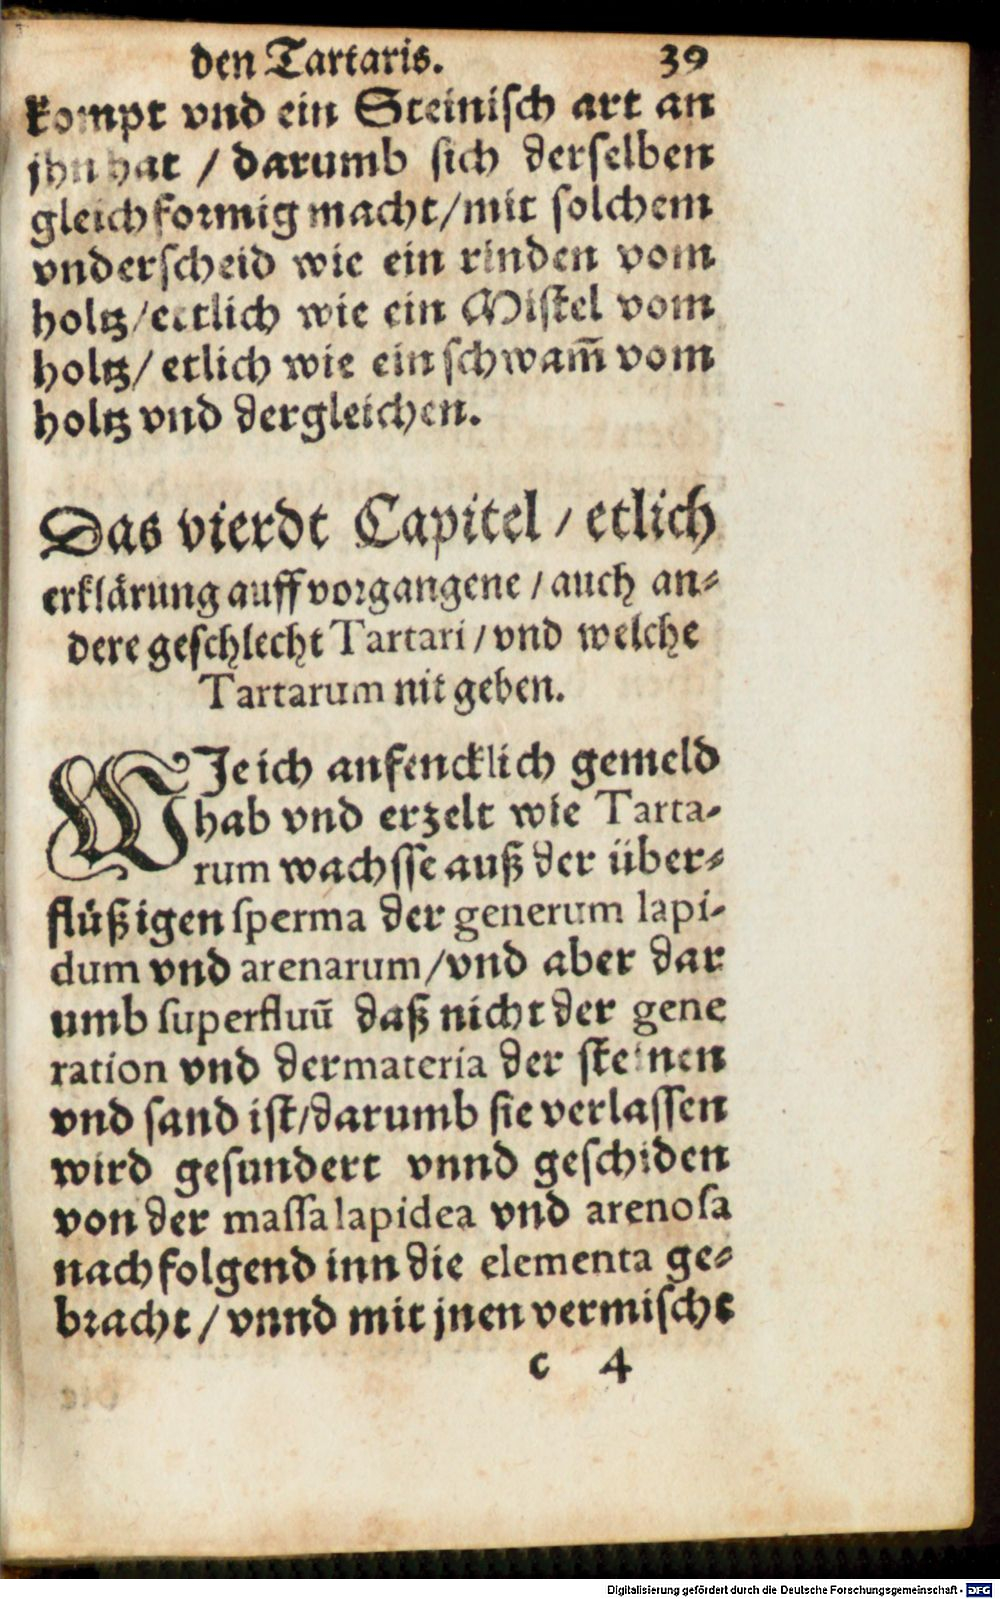 den Tartaris. 39
kompt vnd ein Steinisch art an
jhn hat / darumb sich derselben
gleichformig macht/mit solchem
vnderscheid wie ein rinden vom
holtz/etlich wie ein Mistel vom
holtz/ etlich wie ein schwam̃ vom
holtz vnd dergleichen.
Das vierdt Capitel / etlich
erklärung auff vorgangene / auch an-
dere geschlecht Tartari / vnd welche
Tartarum nit geben.
WJe ich anfencklich gemeld
hab vnd erzelt wie Tarta-
rum wachsse auß der über-
flüßigen sperma der generum lapi-
dum vnd arenarum/vnd aber dar
umb superfluū daß nicht der gene
ration vnd der materia der steinen
vnd sand ist/darumb sie verlassen
wird gesundert vnnd geschiden
von der massa lapidea vnd arenosa
nachfolgend inn die elementa ge-
bracht / vnnd mit jnen vermischt
c 4
Digitalisierung gefördert durch die Deutsche Forschungsgemeinschaft - DFG